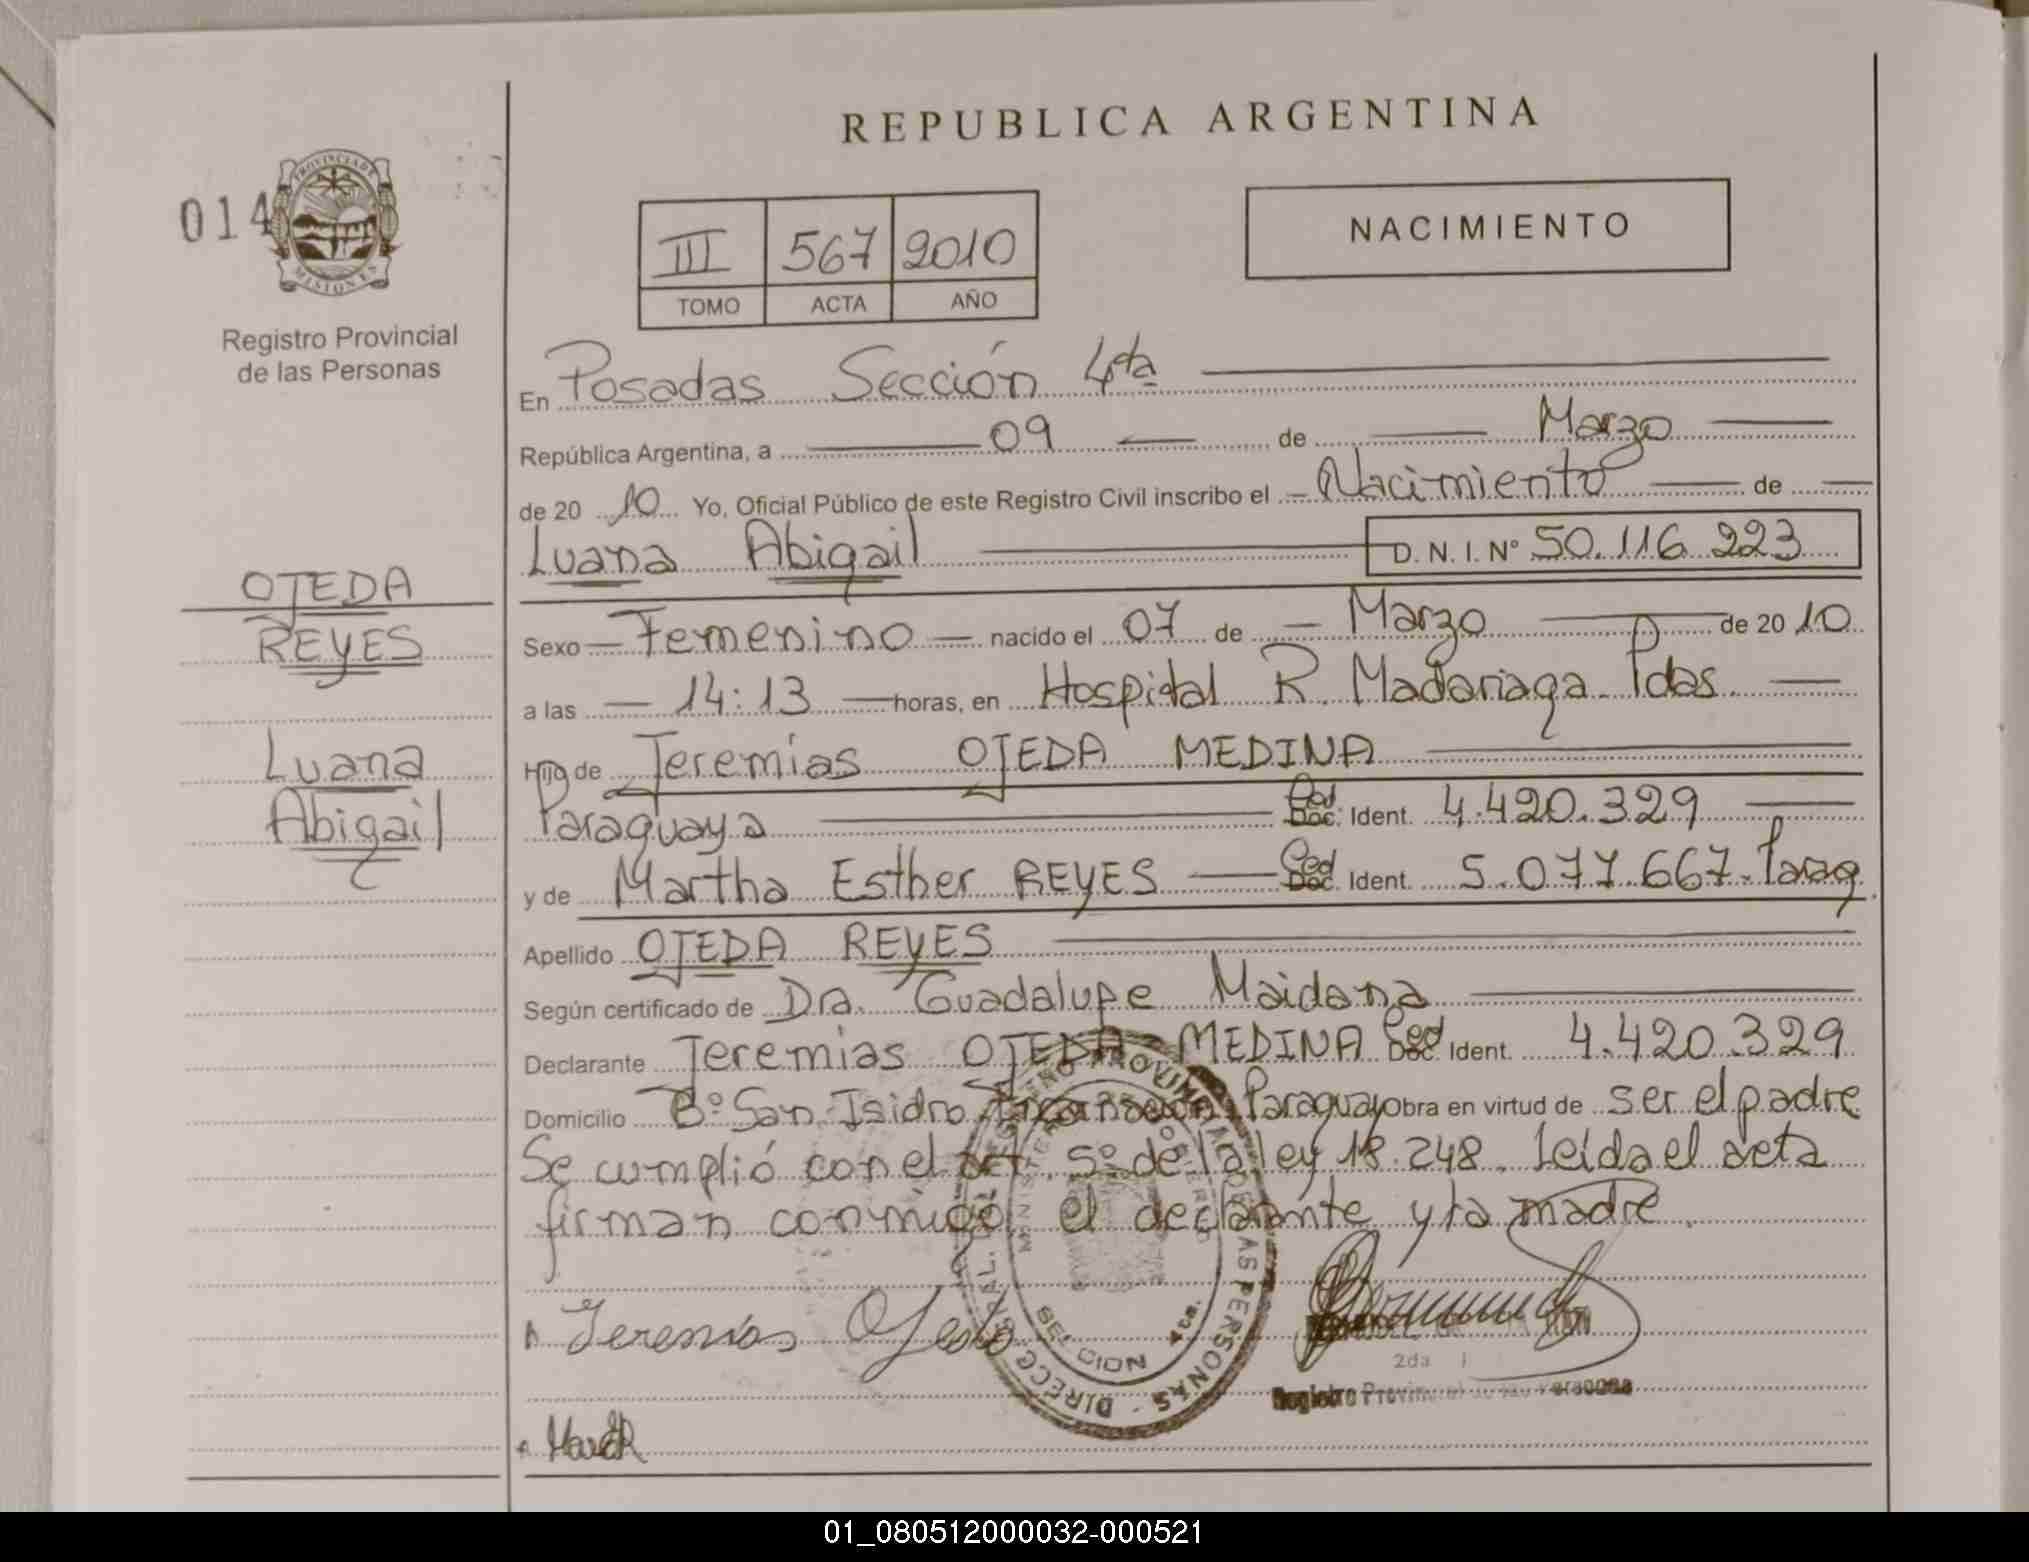 REPUBLICA ARGENTINA
014
PROVINCIA DE
MISIONES
Registro Provincial
de las Personas
III 567 2010
TOMO ACTA AÑO
NACIMIENTO
OJEDA
REYES
Luana
Abigail
En Posadas Sección 4ta
República Argentina, a 09 de Marzo
de 20 10 Yo, Oficial Público de este Registro Civil inscribo el Nacimiento de
Luana Abigail D.N.I.Nº 50.116.223
Sexo Femenino nacido el 07 de Marzo de 20 10
a las 14:13 horas, en Hospital R. Madariaga Pdas.
Hijo de Jeremías OJEDA MEDINA
Paraguaya Ced Doc. Ident. 4.420.329
y de Martha Esther REYES Ced Doc. Ident. 5.077.667. Parag
Apellido OJEDA REYES
Según certificado de Dra. Guadalupe Maidana
Declarante Jeremias OJEDA MEDINA Ced Doc. Ident. 4.420.329
Domicilio Bº San Isidro Encarnación Paraguay obra en virtud de ser el padre
Se cumplió con el art. 5º de la ley 18.248. Leída el acta
firman conmigo el declarante y la madre.
Jeremías Ojeda
DIRECC GRAL. DEL REGISTRO PROVINCIAL DE LAS PERSONAS
MINISTERIO DE GOBIERNO
SECCION 4ta.
2da
Registro Provincial de las Personas
01_080512000032-000521